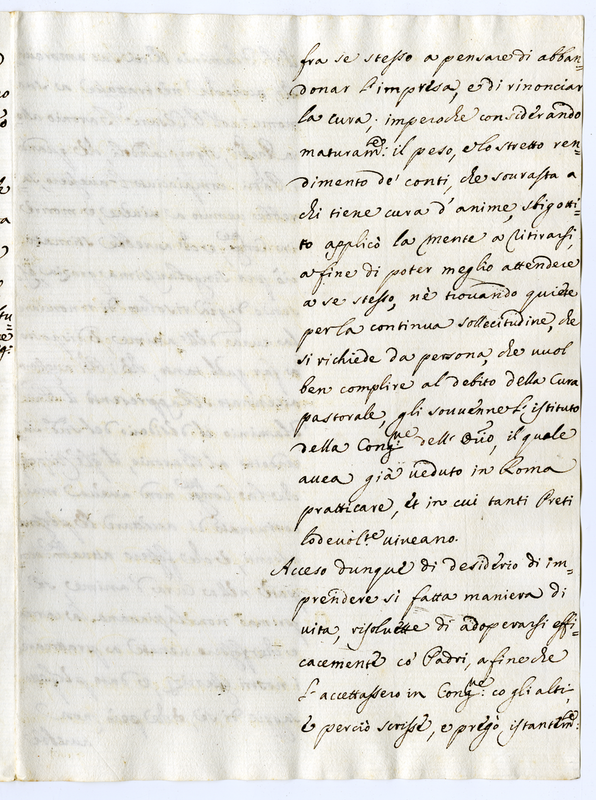 fra se stesso a pensare di abban=
donar l'impresa, e di rinonciar
la cura; imperoche considerando
maturam:te il peso, e lo stretto ren=
dimento de' conti, che sourasta a
chi tiene cura d'anime, sbigotti=
to applicò la mente a ritirarsi,
a fine di poter meglio attendere
a se stesso, nè trouando quiete
per la continua sollecitudine, che
si richiede da persona, che vuol
ben complire al debito della Cura
pastorale, gli souuenne l'istituto
della Cong:ne dell' Orio, il quale
auea già veduto in Roma
pratticare, et in cui tanti Preti
lodeuol:te viueano.
Acceso dunque di desiderio di im=
prendere si fatta maniera di
vita, risoluette di adoperarsi effi=
cacemente co' Padri, a fine che
l'accettassero in Cong:ne co gli altri,
e perciò scrisse, e pregò istantem:te